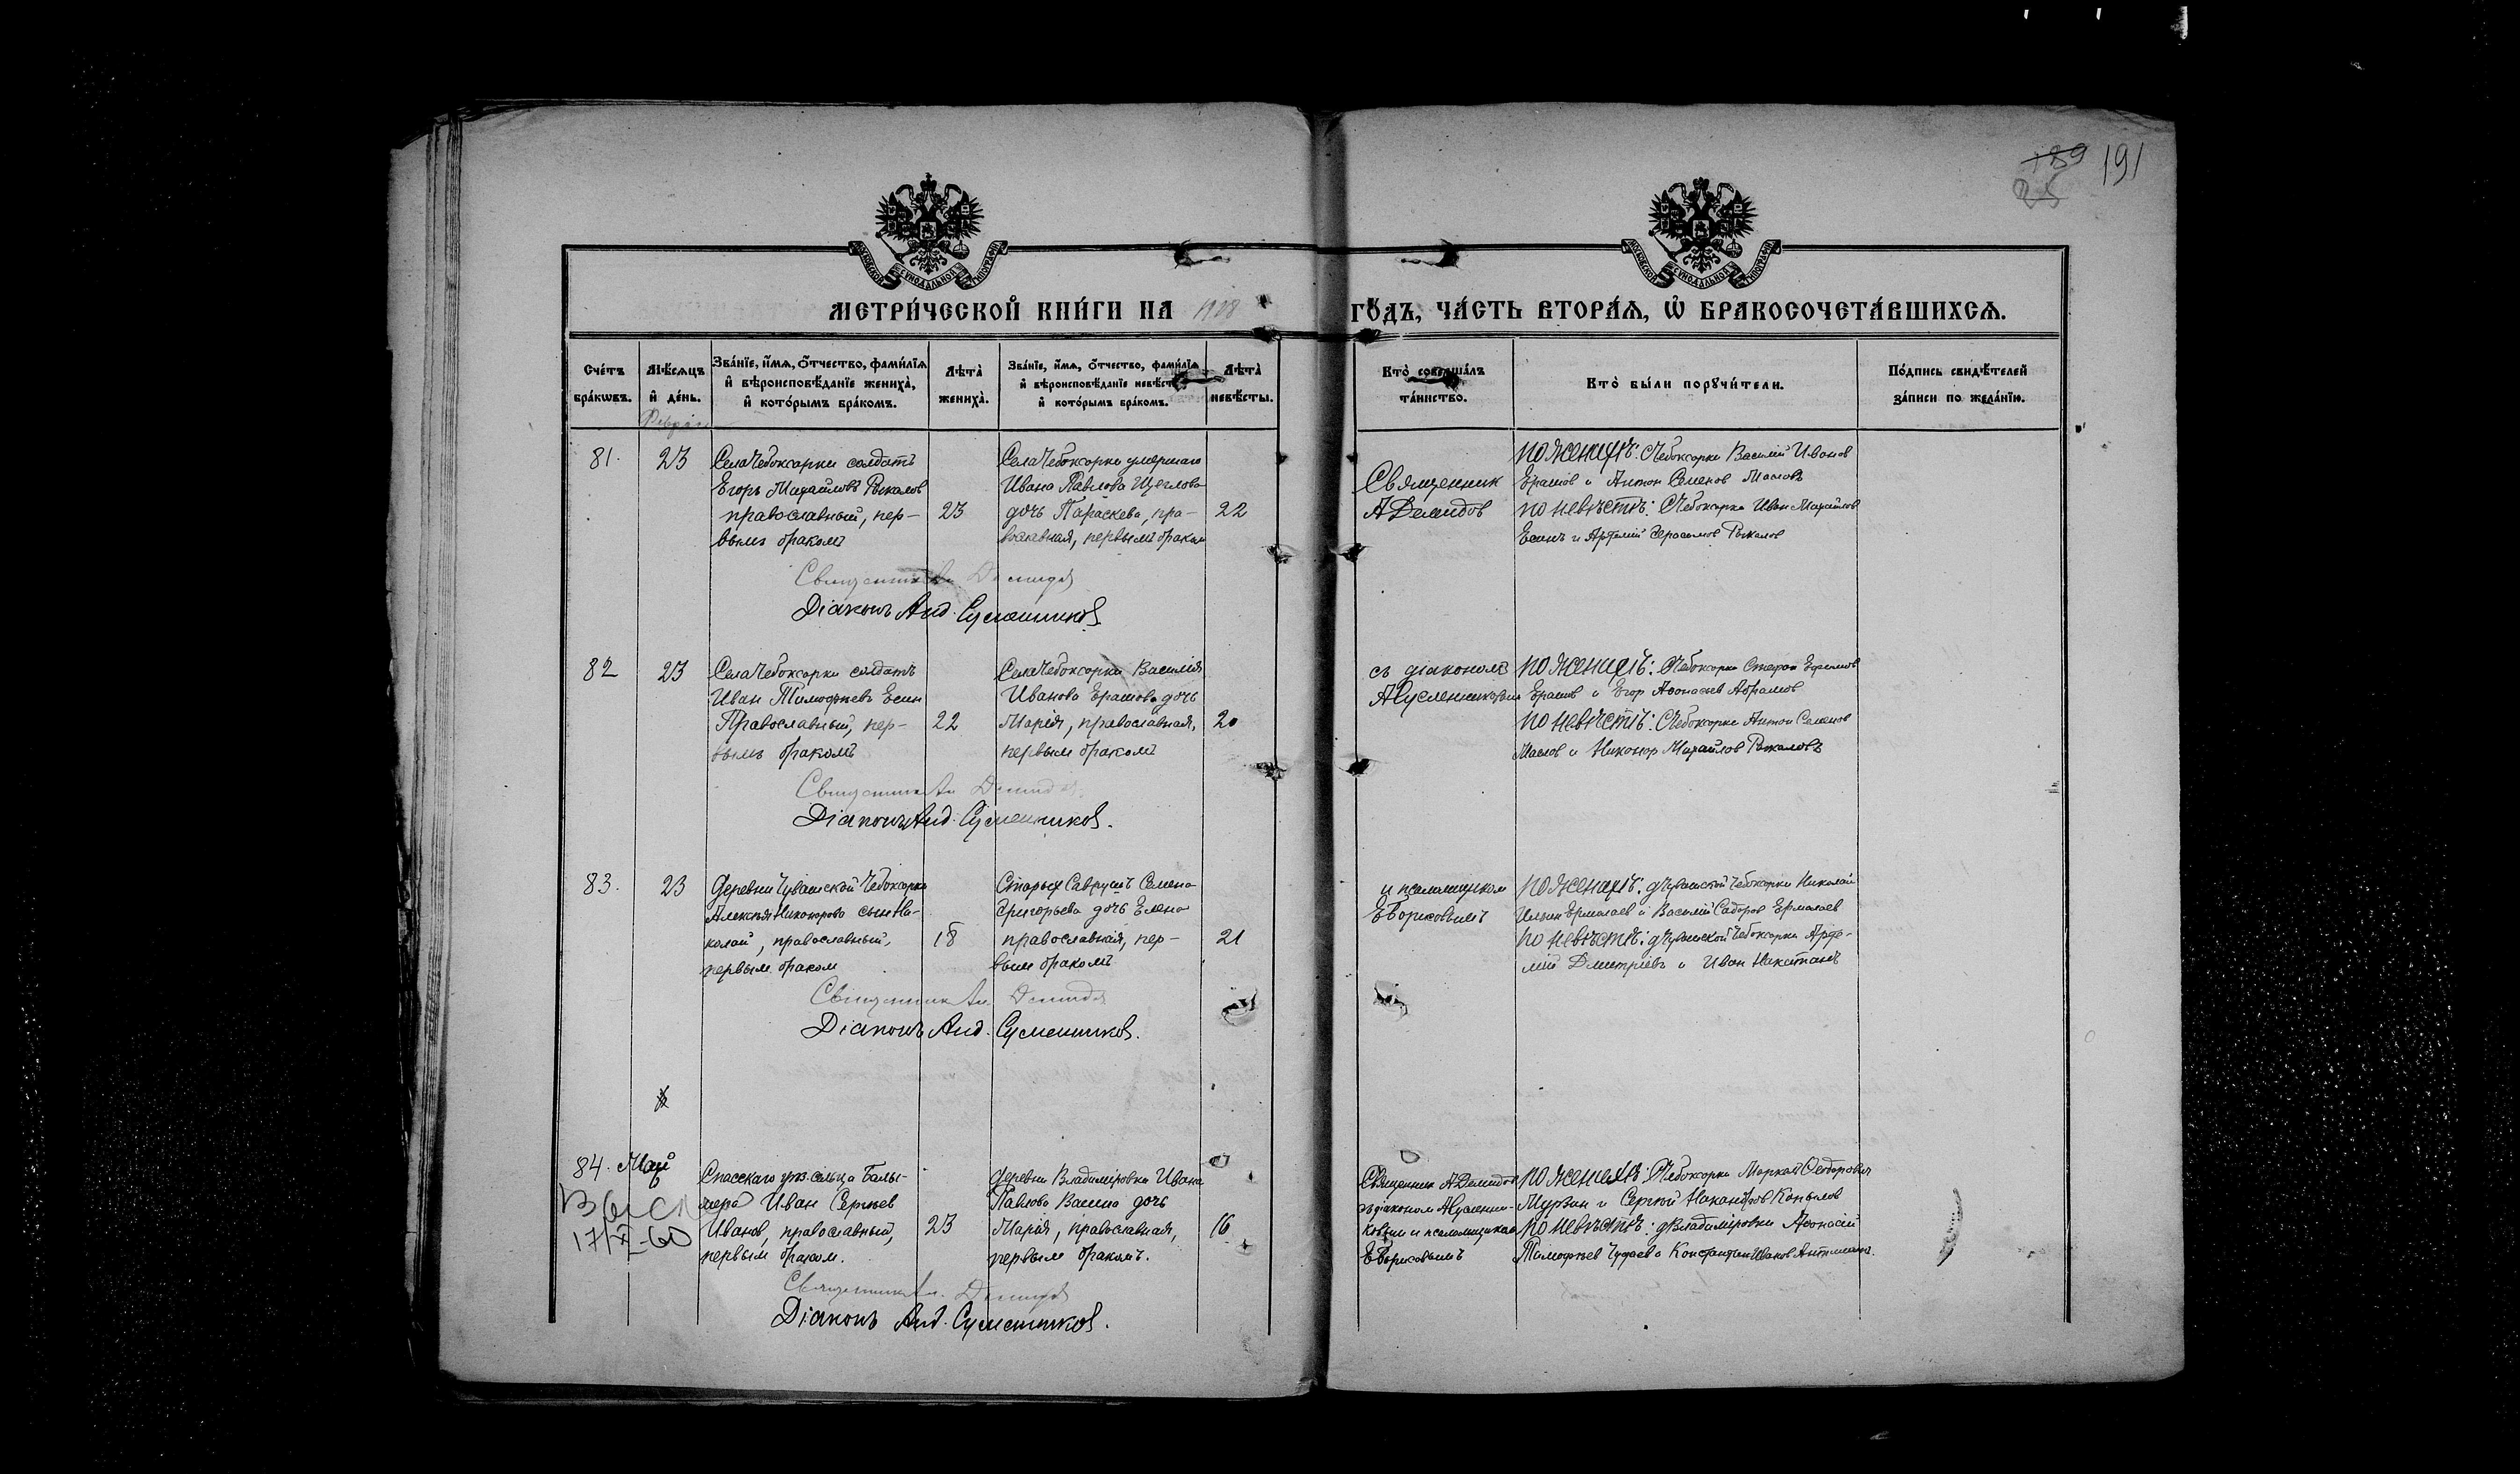 189
25
191
МЕТРИЧЕСКОЙ КНИГИ НА 1918 ГОДЪ, ЧАСТЬ ВТОРАЯ, Ѡ БРАКОСОЧЕТАВШИХСЯ.
Счетъ браковъ.
Мѣсяцъ и день.
Званіе, имя, отчество, фамилія и вѣроисповѣданіе жениха, и которымъ бракомъ.
Лѣта жениха.
Званіе, имя, отчество, фамилія и вѣроисповѣданіе невѣсты и которымъ бракомъ.
Лѣта невѣсты.
Кто совершалъ таинство.
Кто были поручители.
Подпись свидѣтелей записи по желанію.
81.
23
Села Чебоксарки солдатъ
Егоръ Михайловъ Рыкалов
православный, пер-
вымъ бракомъ
23
Села Чебоксарки умершаго
Ивана Павлова Щеглова
дочь Параскева, пра-
вославная, первымъ браком
22
Священник
А Демидов
По женихѣ: с Чебоксарки Василій Иванов
Ерашов и Антон Семенов Маслов
по невѣстѣ: с Чебоксарки Иван Михайлов
Есинъ и Арфемій Герасимов Рыкалов
Священник Ан Демидов
Діаконъ Анд.
82
23
Села Чебоксарки солдатъ
Иван Тимофѣевъ Есин
Православный, пер-
вымъ бракомъ
22
Села Чебоксарки Василія
Иванова Ерашова дочь
Марія, православная,
первым бракомъ
20
съ діакономъ
По женихѣ: с Чебоксарки Стефан Ефимов
Ерашов и Егор Афонасьев Абрамов
по невѣстѣ: с Чебоксарки Антон Семенов
Маслов и Никонор Михайлов Рыкаловъ
Священник Ан Демидов
Діаконъ Анд.
83.
23
Деревни Чувашской Чебоксарки
Алексѣя Никонорова сын Ни-
колай, православный,
первым браком
18
Старых Саврушъ Семена
Григорьева дочь Елена
православная, пер-
вым бракомъ
21
и псаломщиком
Е Борисовымъ
По женихѣ: д Чувашской Чебоксарки Николай
Ильин Ермолаев и Василій Ермолаев
по невѣстѣ: д Чувашской Чебоксарки Арфе-
мій Дмитріевъ и Иван
Священник Ан. Демидов
Діаконъ Анд.
84. Май
6
17/X-60
Спасскаго уѣз. сельца Балы-
мера Иван Сергѣев
Иванов, православный,
первым браком.
23
Деревни Владиміровки Ивана
Павлова Васина дочь
Марія, православная,
первым бракомъ.
16
Священник А Демидов
съ діаконом
и псаломщиком
Е Борисовымъ
По женихѣ: с Чебоксарки Маркел Ѳедорович
Мурзин и Сергѣй Никаноров Копылов
по невѣстѣ: д Владиміровки Афонасій
Тимофѣев Чудаев и Константин Иванов
Священник Ан. Демидов
Діаконъ Анд.